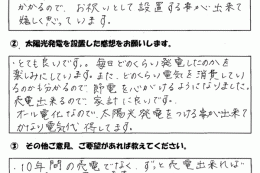 かかるので、お祝いとして設置する事が出来て
嬉しく思っています。
② 太陽光発電を設置した感想をお願いします。
・とても良いです。。毎日どのくらい発電したのかを
楽しみにしています。また、どのくらい電気を消費してい
るのかも分かるので、節電を心がけるようになりました。
売電出来るので、家計に良いです。
オール電化なので、太陽光発電をつける事が出来て
かなり電気代得してます。
③ その他ご意見、ご要望があれば教えてください。
・10年間の売電でなく、ずっと売電出来れば